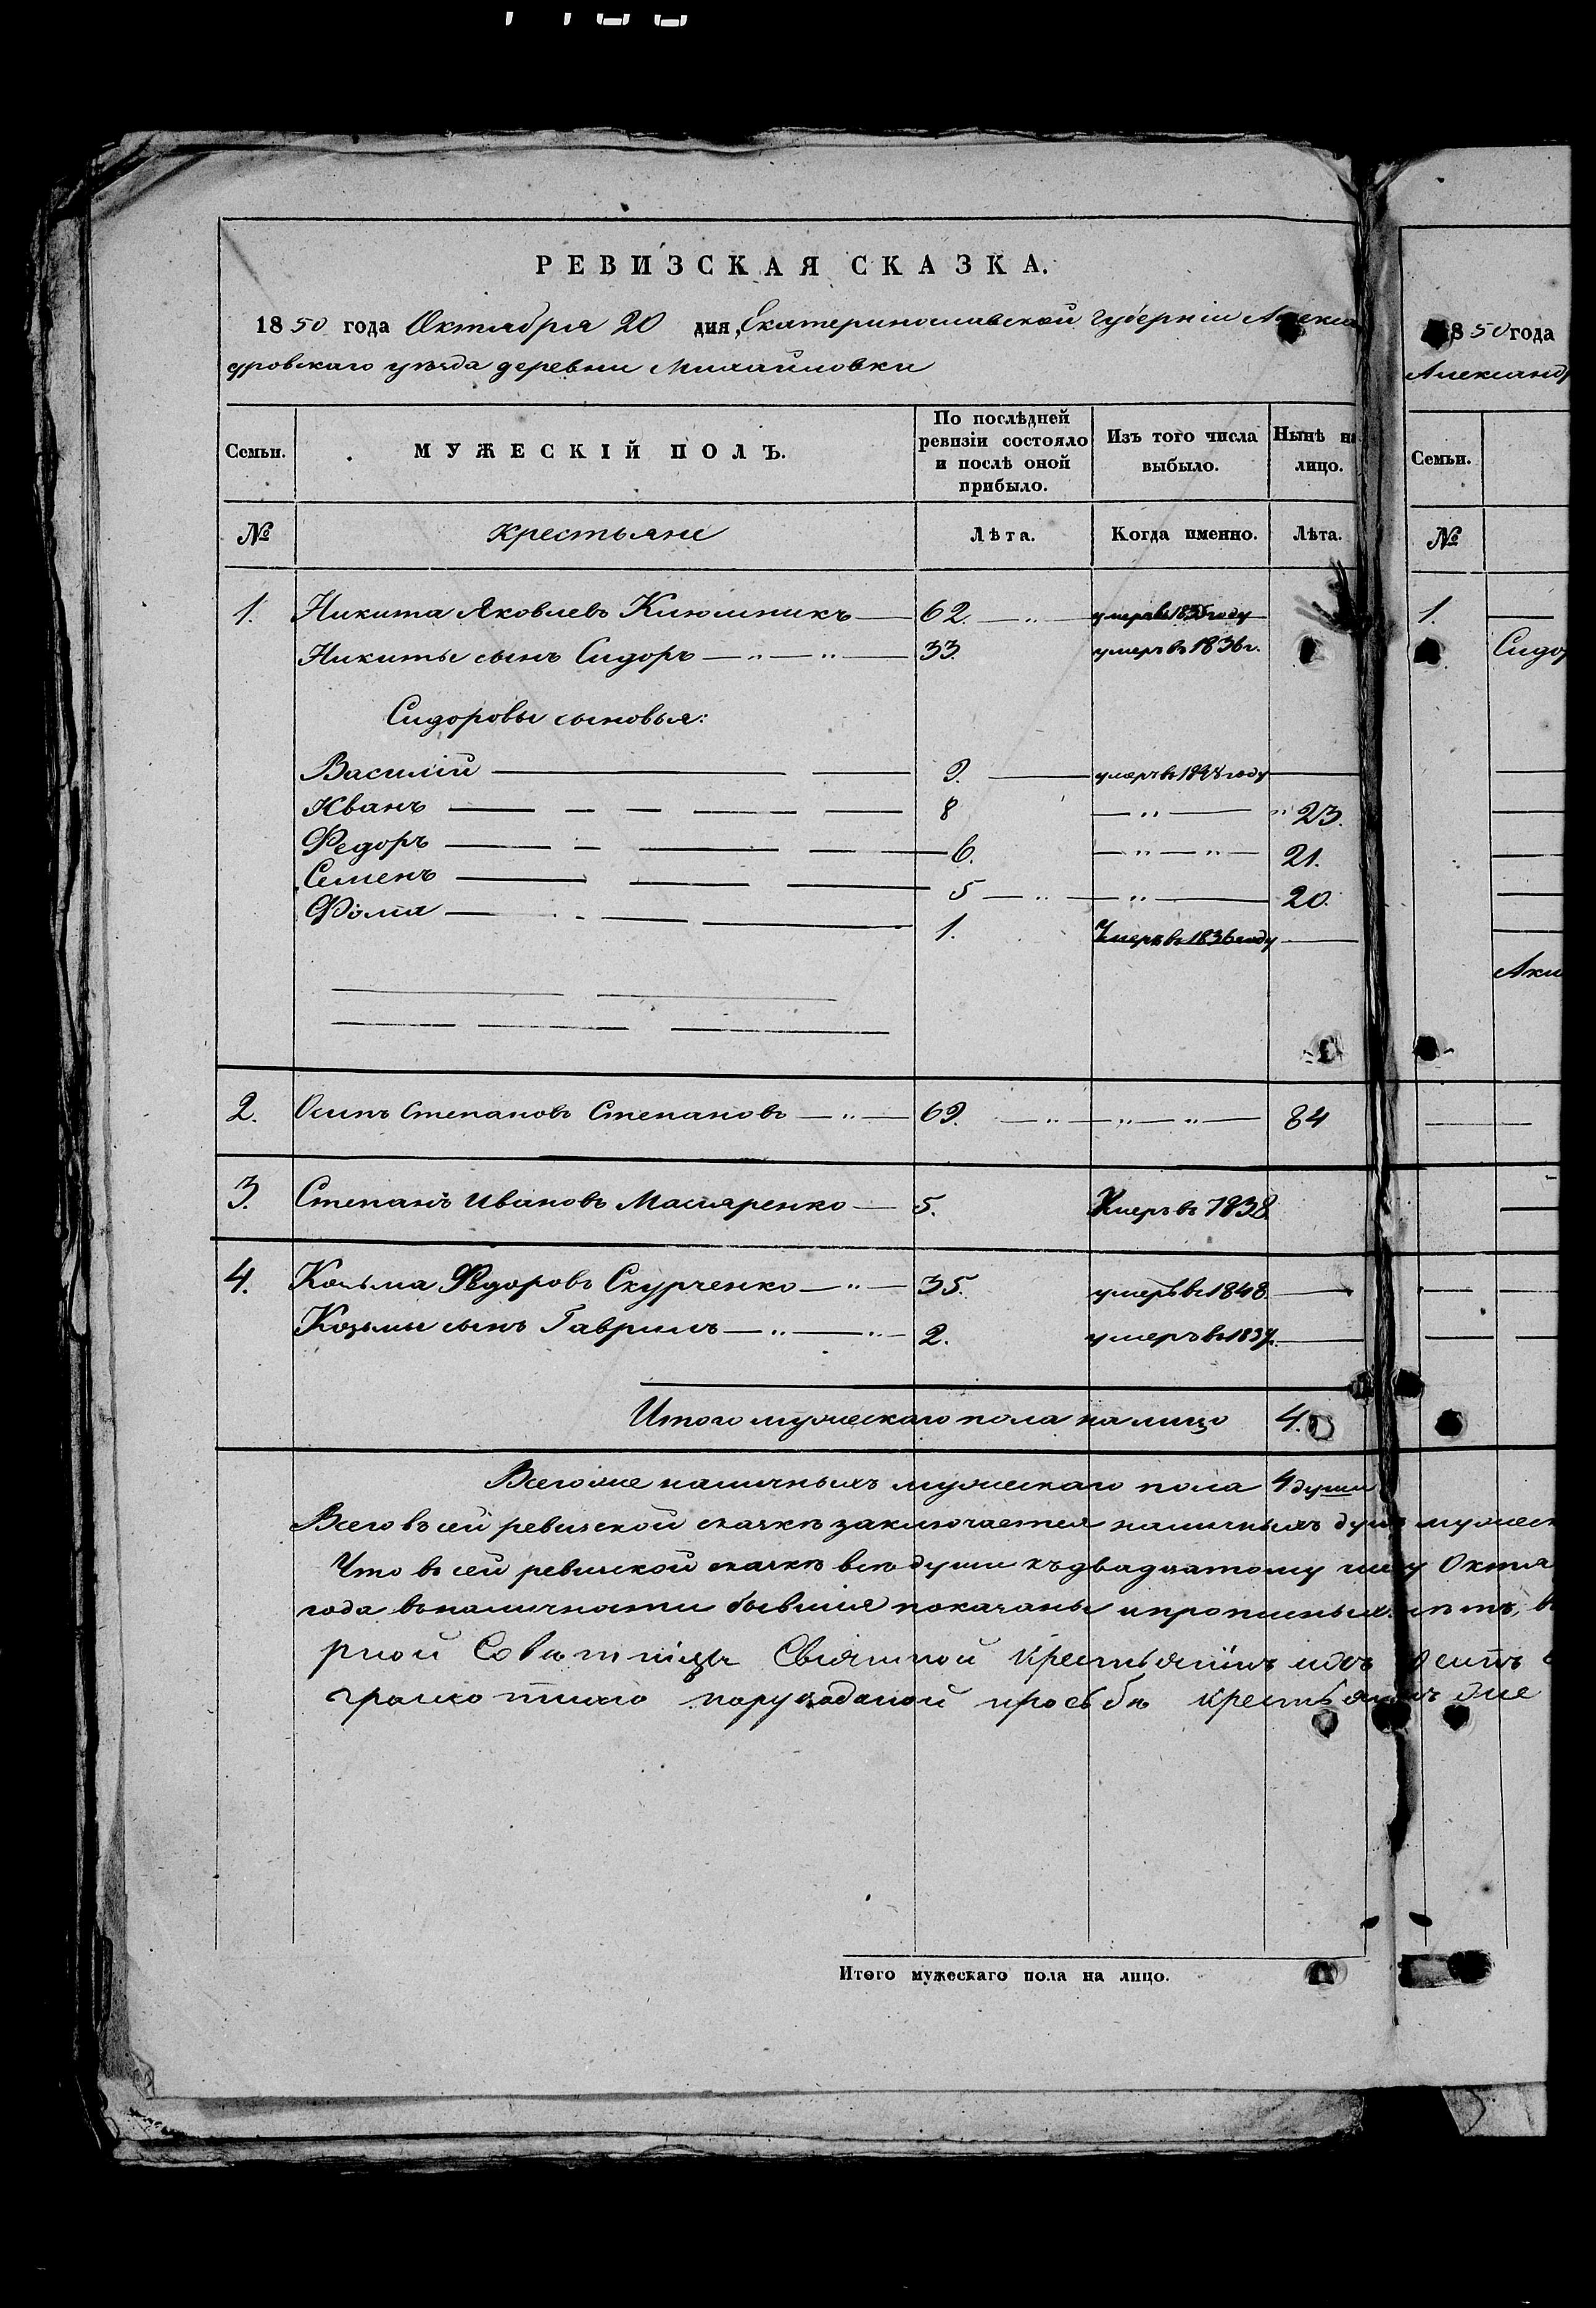 РЕВИЗСКАЯ СКАЗКА.
1850 года Октября 20 дня, Екатеринославской Губерніи Алекса
дровскаго уезда деревни Михайловки
Семьи. МУЖЕСКІЙ ПОЛЪ. По послѣдней ревизіи состояло и послѣ оной прибыло. Изъ того числа выбыло. Нынѣ на лицо.
№ Крестьяне Лѣта. Когда именно. Лѣта.
1. Никита Яковлевъ Клюшникъ 62. умеръ въ году
Никиты сынъ Сидоръ 33. умеръ въ 1836 г.
Сидоровы сыновья:
Василій 9. умеръ въ году
Иванъ 8 23.
Федоръ 6. 21.
Семенъ 5 20.
Фома 1. Умеръ въ 1836 году
2. Осипъ Степановъ Степановъ 69. 84
3. Степанъ Ивановъ Масляренко 5. Умеръ въ 1838.
4. Козьма Федоровъ Скурченко 35. умеръ въ 1848.
Козьмы сынъ Гаврилъ 2. умеръ въ 1837.
Итого мужескаго пола на лицо 4.
Всего же наличныхъ мужескаго пола 4 души
Всего въ сей ревизской сказкѣ заключается наличныхъ душъ мужеск
Что въ сей ревизской сказкѣ всѣ души къ двадцатому числу Октя
года въ наличности бывшія показаны и прописныхъ нѣтъ, в
крестьянинъ
просьбѣ
Итого мужескаго пола на лицо.
50 года
Александ
Семьи.
№
1.
Сидор
Аки